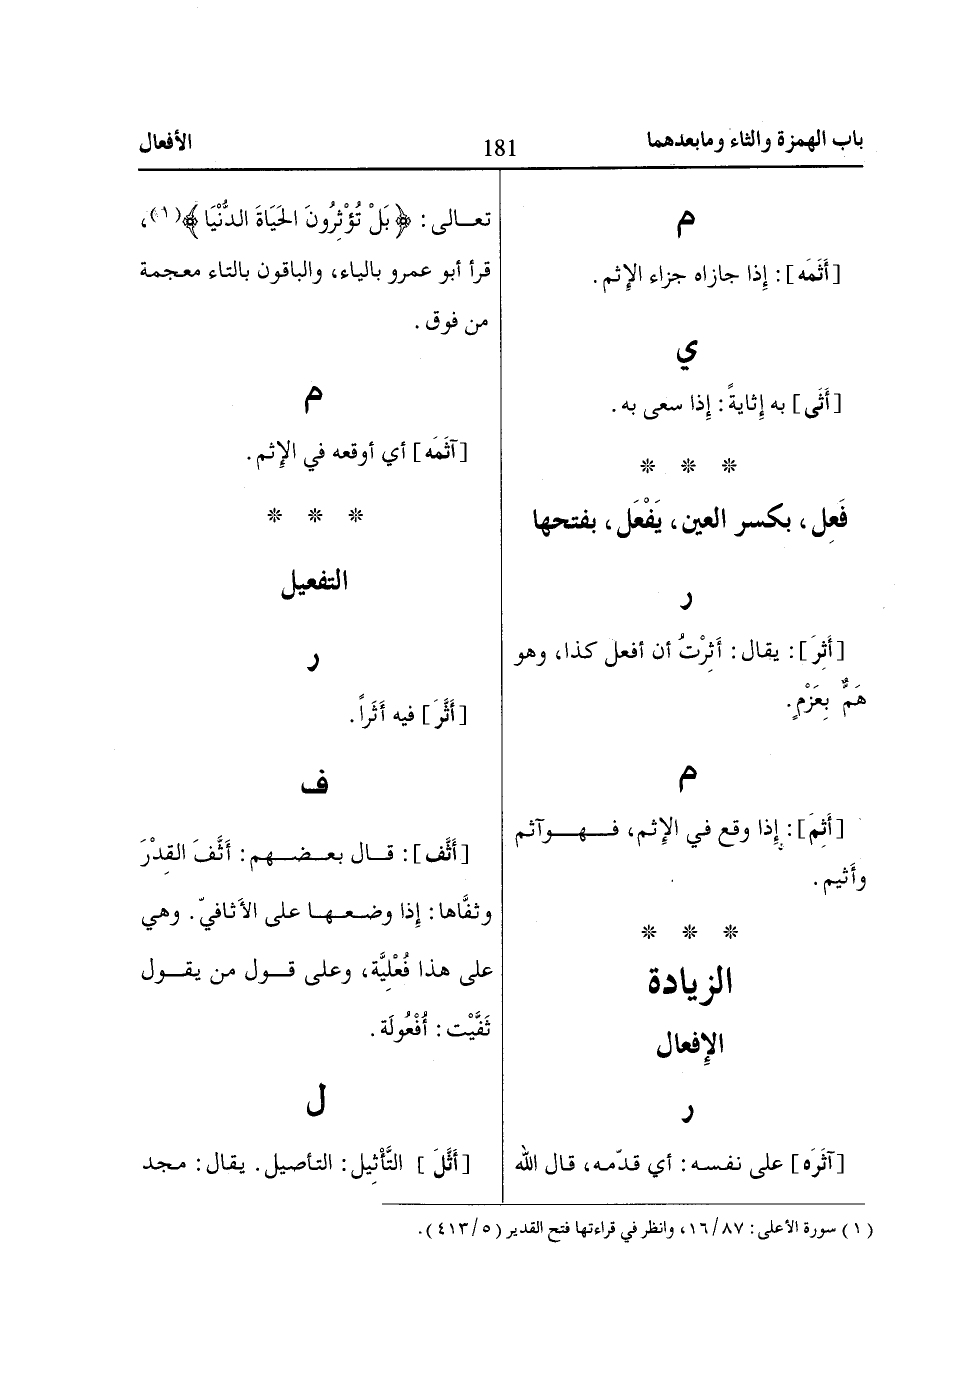 باب الهمزة والثاء ومابعدهما
181
الأفعال
م
[أَثَمَه]: إذا جازاه جزاء الإثم.
ي
[أَثَى] به إثايةً: إذا سعى به.
* * *
فَعِل، بكسر العين، يَفْعَل، بفتحها
ر
[أَثِرَ]: يقال: أَثِرْتُ أن أفعل كذا، وهو
هَمٌّ بِعَزْمٍ.
م
[أَثِمَ]: إذا وقع في الإثم، فهو آثم
وأَثيم.
* * *
الزيادة
الإفعال
ر
[آثَرَه] على نفسه: أي قدّمه، قال الله
تعالى: ﴿بَلْ تُؤْثِرُونَ الحَيَاةَ الدُّنْيَا﴾(١)،
قرأ أبو عمرو بالياء، والباقون بالتاء معجمة
من فوق.
م
[آثَمَه] أي أوقعه في الإثم.
* * *
التفعيل
ر
[أَثَّرَ] فيه أَثَراً.
ف
[أَثَّف]: قال بعضهم: أَثَّفَ القِدْرَ
وثفَّاها: إذا وضعها على الأثافيّ. وهي
على هذا فُعْلِيَّة، وعلى قول من يقول
ثَفَّيْت: أُفْعُولَة.
ل
[أَثَّلَ] التَّأْثيل: التأصيل. يقال: مجد
(١) سورة الأعلى: ٨٧/١٦، وانظر في قراءتها فتح القدير (٥/٤١٣).